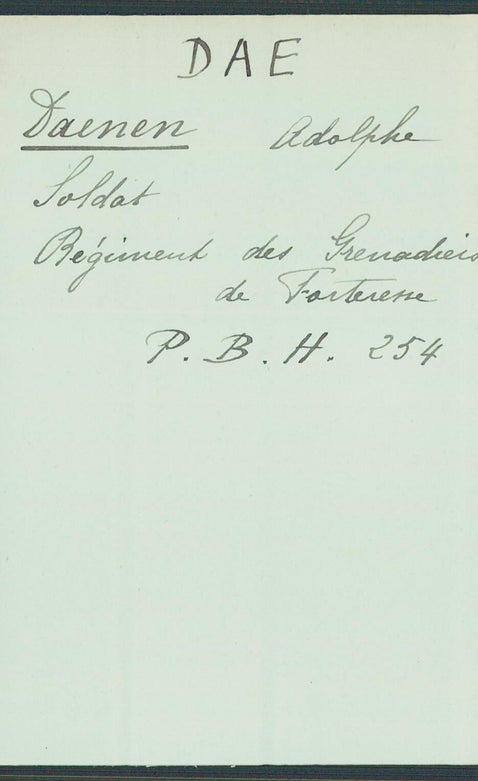 DAE
Daenen Adolphe
Soldat
Régiment des Grenadiers
de Forteresse
P. B. H. 254